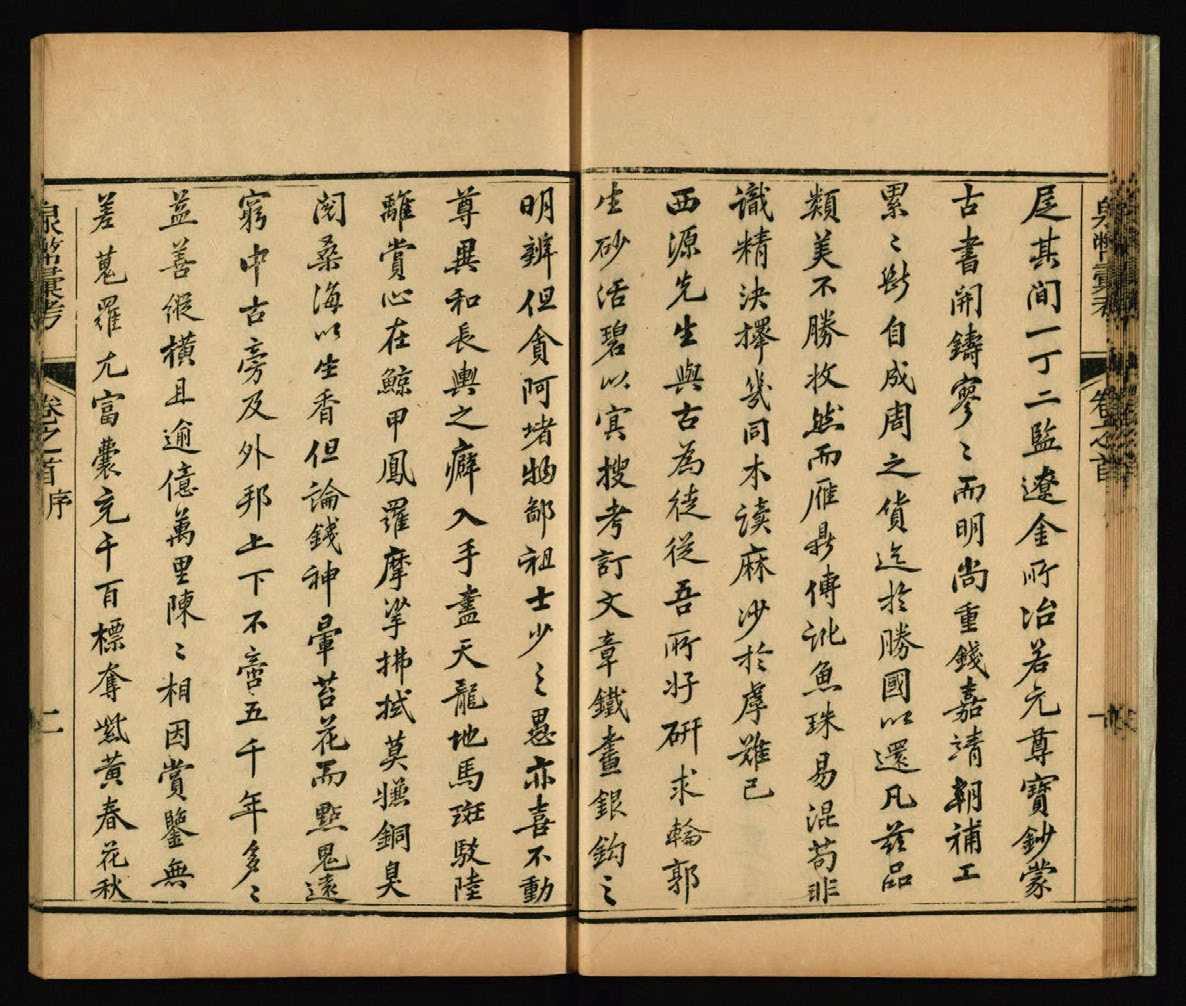 泉幣彙考
卷之首
一
㞐其間一丁二監遼金所冶若元尊寶鈔蒙
古書開鑄寥〻而明尚重錢嘉靖朝補工
累〻斷自成周之貨迄於勝國以還凡茲品
類美不勝收然而雁鼎傳訛魚珠易混苟非
識精決擇幾同木讀麻沙於虖難已
西源先生與古為徒從吾所好研求輪郭
生砂活碧以冥搜考訂文章鐵畫銀鈎之
明辨但貪阿堵物鄙祖士少之愚亦喜不動
尊異和長輿之癖入手盡天龍地馬斑駁陸
離賞心在鯨甲鳳羅摩挲拂拭莫嫌銅臭
閱桑海以生香但論錢神暈苔花而點鬼遠
窮中古旁及外邦上下不啻五千年多〻
益善縱橫且逾億萬里陳〻相因賞鑒無
差蒐羅尤富囊充千百標奪紫黃春花秋
泉幣彙考
卷之首 序
二